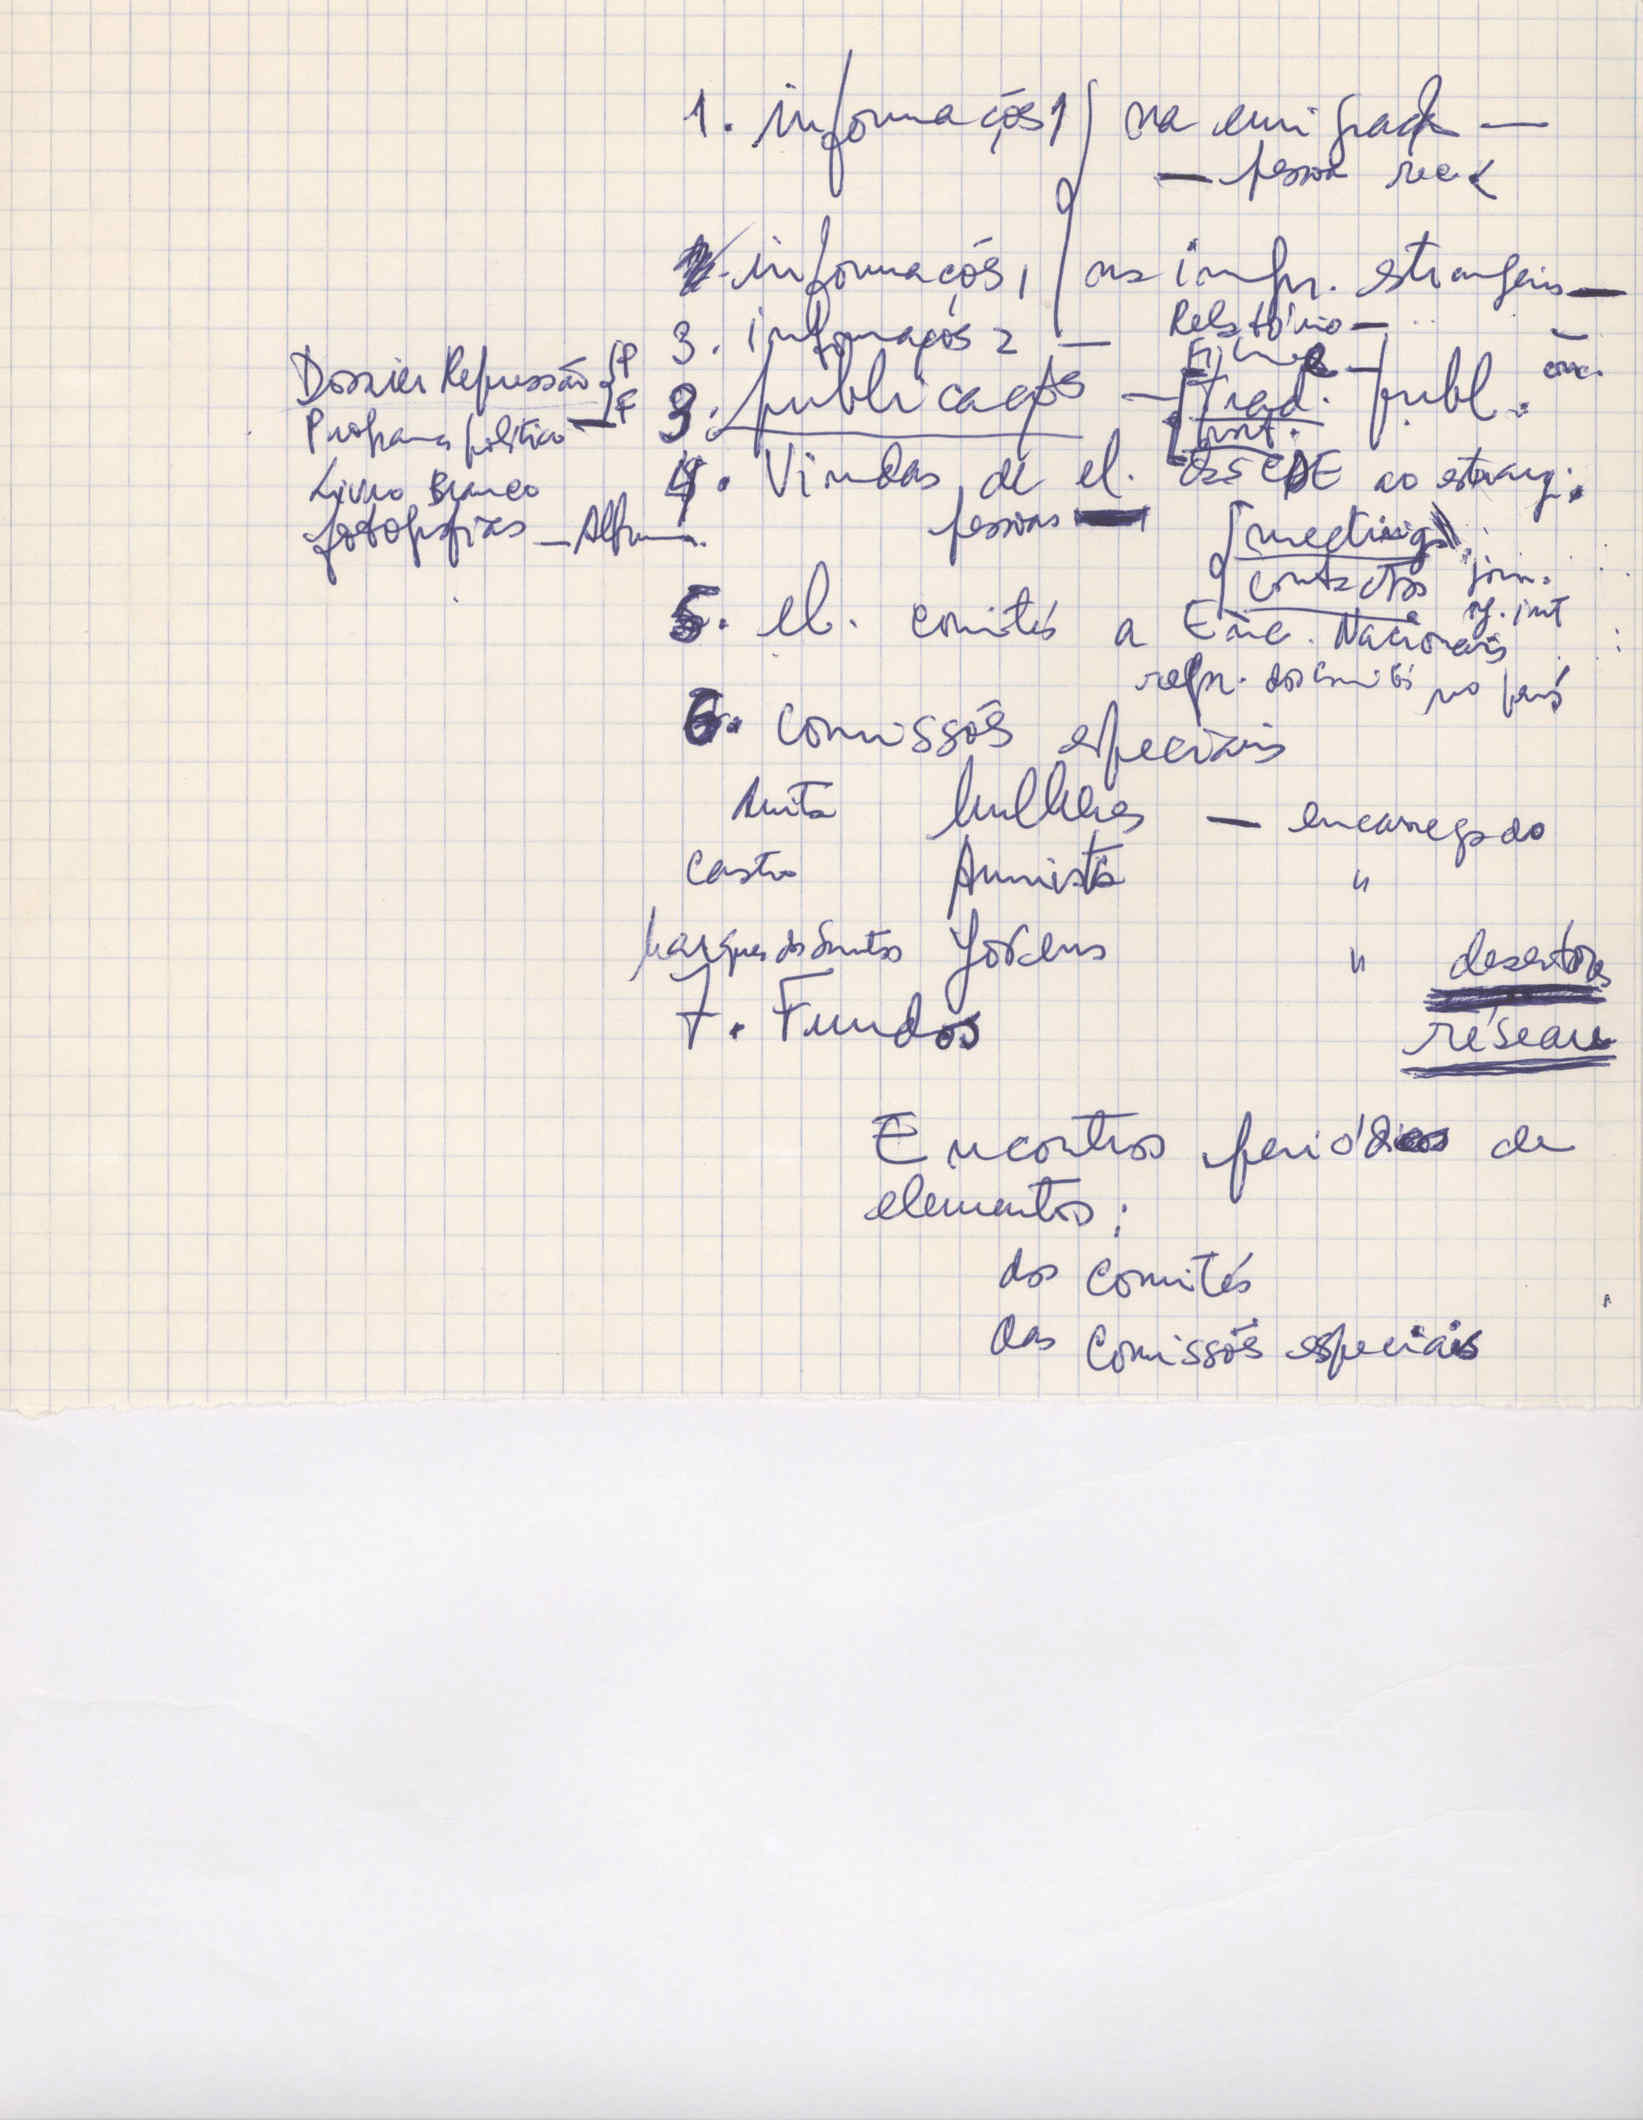 1. informações 1 na emigração —
— pessoa rec
informações 1 na impr. estrangeira —
3. informações 2 — Relatório —
Filmes —
Dossier Repressão P F
3. publicações — trad. publ.
Programa político —
Livro Branco
4. Vindas de el. CDE ao estrang.
pessoas
fotografias — Album
meetings
contactos jorn.
5. el. comités a Enc. Nacionais
repr. dos comités no país
6. Comissões especiais
Anita Mulheres — encarregado
Castro Amnistia "
Marques dos Santos Jovens " desertores
7. Fundos réseau
Encontros periódicos de
elementos:
dos comités
das Comissões especiais